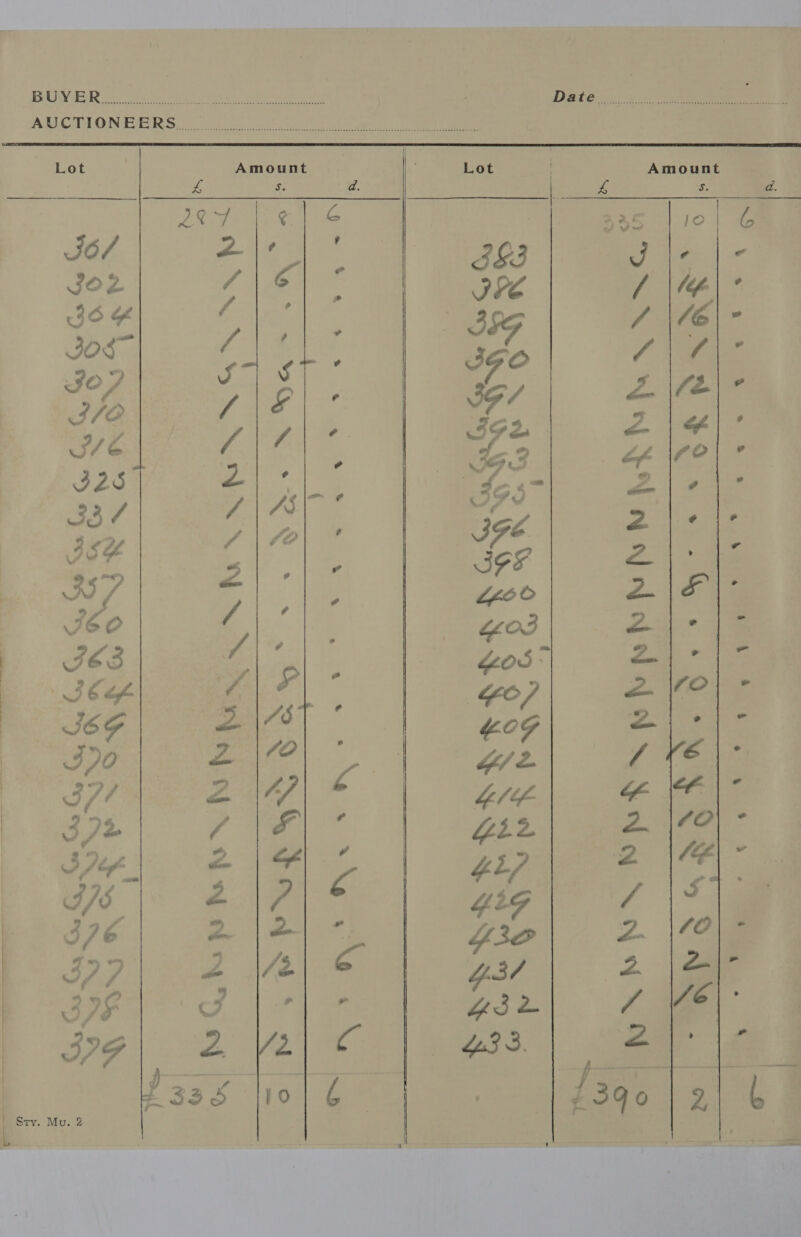 BUYER Date
AUCTIONEERS
Lot Amount Lot Amount
£ s. d. £ s. d.
287 8 6 335 10 6
301 2 · · 383 3 · -
302 1 6 - 386 1 14 -
304 1 · - 389 1 16 -
305 1 · · 390 1 1 -
307 5 5 - 391 2 12 -
310 1 8 - 392 2 4 -
316 1 1 - 393 4 10 -
325 2 · · 395 2 · ·
331 1 15 - 396 2 · ·
354 1 10 - 398 2 · -
357 2 · · 400 2 8 -
360 1 · · 403 2 · -
363 1 · · 405 2 · -
364 1 8 - 407 2 10 -
369 2 15 - 409 2 · -
370 2 10 - 412 1 16 -
371 2 17 6 414 4 4 -
372 1 8 - 422 2 10 -
374 2 4 - 427 2 14 -
375 2 7 6 429 1 5 -
376 2 2 - 430 2 10 -
377 2 12 6 431 2 2 -
378 3 · · 432 1 16 -
379 2 12 6 433. 2 · -
£335 10 6 £390 2 6
Sty. Mu. 2